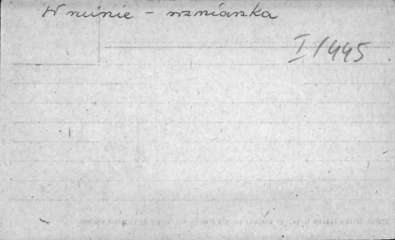 W ruinie – wzmianka
I/445